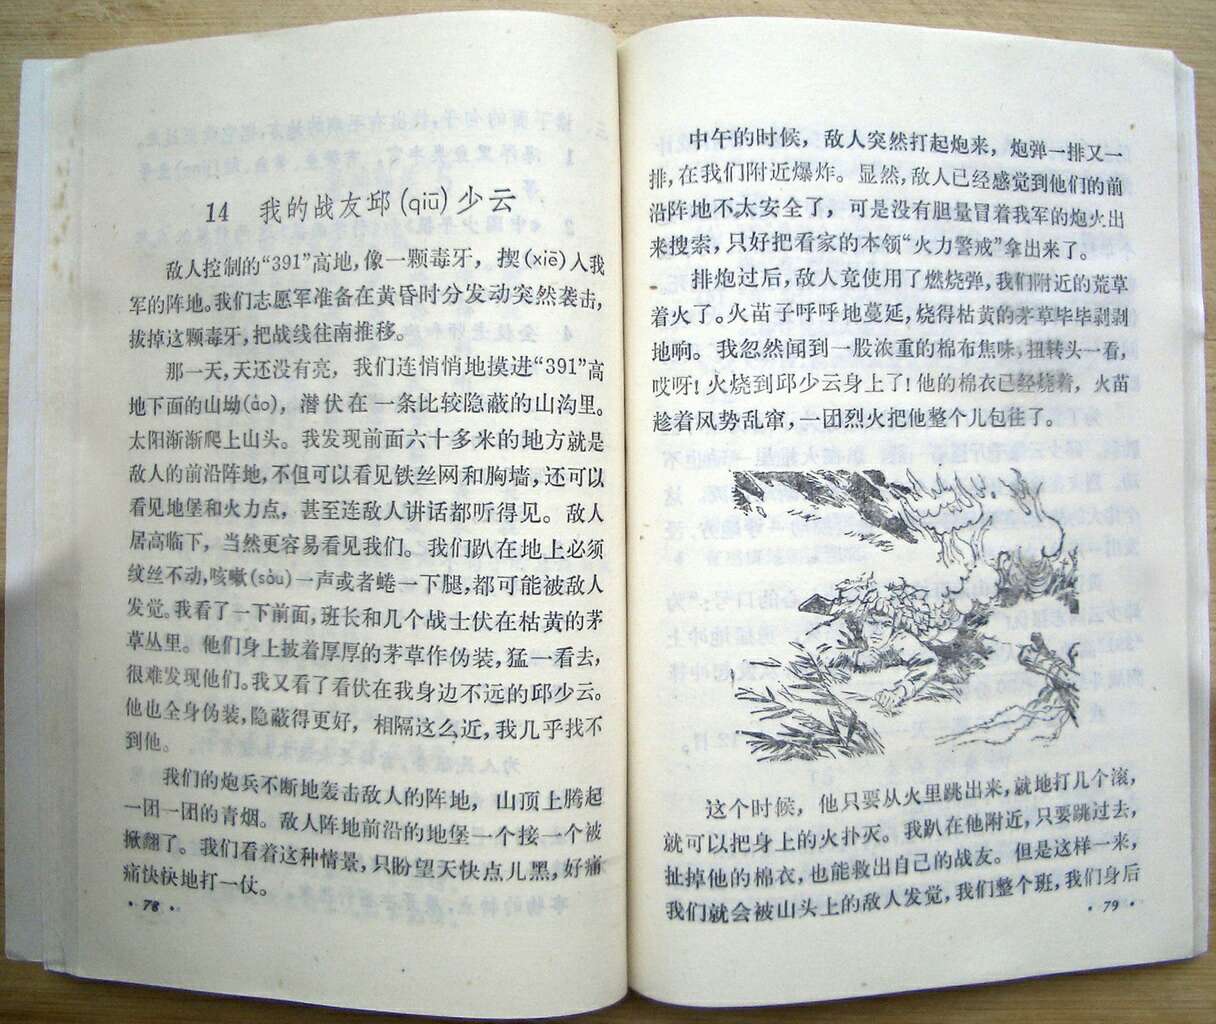 14 我的战友邱(qiū)少云
敌人控制的“391”高地,像一颗毒牙，揳(xiē)入我
军的阵地。我们志愿军准备在黄昏时分发动突然袭击,
拔掉这颗毒牙,把战线往南推移。
那一天,天还没有亮，我们连悄悄地摸进“391”高
地下面的山坳(ào)，潜伏在一条比较隐蔽的山沟里。
太阳渐渐爬上山头。我发现前面六十多米的地方就是
敌人的前沿阵地,不但可以看见铁丝网和胸墙,还可以
看见地堡和火力点，甚至连敌人讲话都听得见。敌人
居高临下，当然更容易看见我们。我们趴在地上必须
纹丝不动,咳嗽(sòu)一声或者蜷一下腿,都可能被敌人
发觉。我看了一下前面,班长和几个战士伏在枯黄的茅
草丛里。他们身上披着厚厚的茅草作伪装,猛一看去,
很难发现他们。我又看了看伏在我身边不远的邱少云。
他也全身伪装,隐蔽得更好，相隔这么近,我几乎找不
到他。
我们的炮兵不断地轰击敌人的阵地，山顶上腾起
一团一团的青烟。敌人阵地前沿的地堡一个接一个被
掀翻了。我们看着这种情景,只盼望天快点儿黑,好痛
痛快快地打一仗。
·78·
中午的时候，敌人突然打起炮来，炮弹一排又一
排,在我们附近爆炸。显然,敌人已经感觉到他们的前
沿阵地不太安全了，可是没有胆量冒着我军的炮火出
来搜索,只好把看家的本领“火力警戒”拿出来了。
排炮过后,敌人竟使用了燃烧弹,我们附近的荒草
着火了。火苗子呼呼地蔓延,烧得枯黄的茅草毕毕剥剥
地响。我忽然闻到一股浓重的棉布焦味,扭转头一看,
哎呀！火烧到邱少云身上了！他的棉衣已经烧着，火苗
趁着风势乱窜，一团烈火把他整个儿包住了。
这个时候，他只要从火里跳出来,就地打几个滚,
就可以把身上的火扑灭。我趴在他附近,只要跳过去,
扯掉他的棉衣,也能救出自己的战友。但是这样一来,
我们就会被山头上的敌人发觉,我们整个班,我们身后
·79·